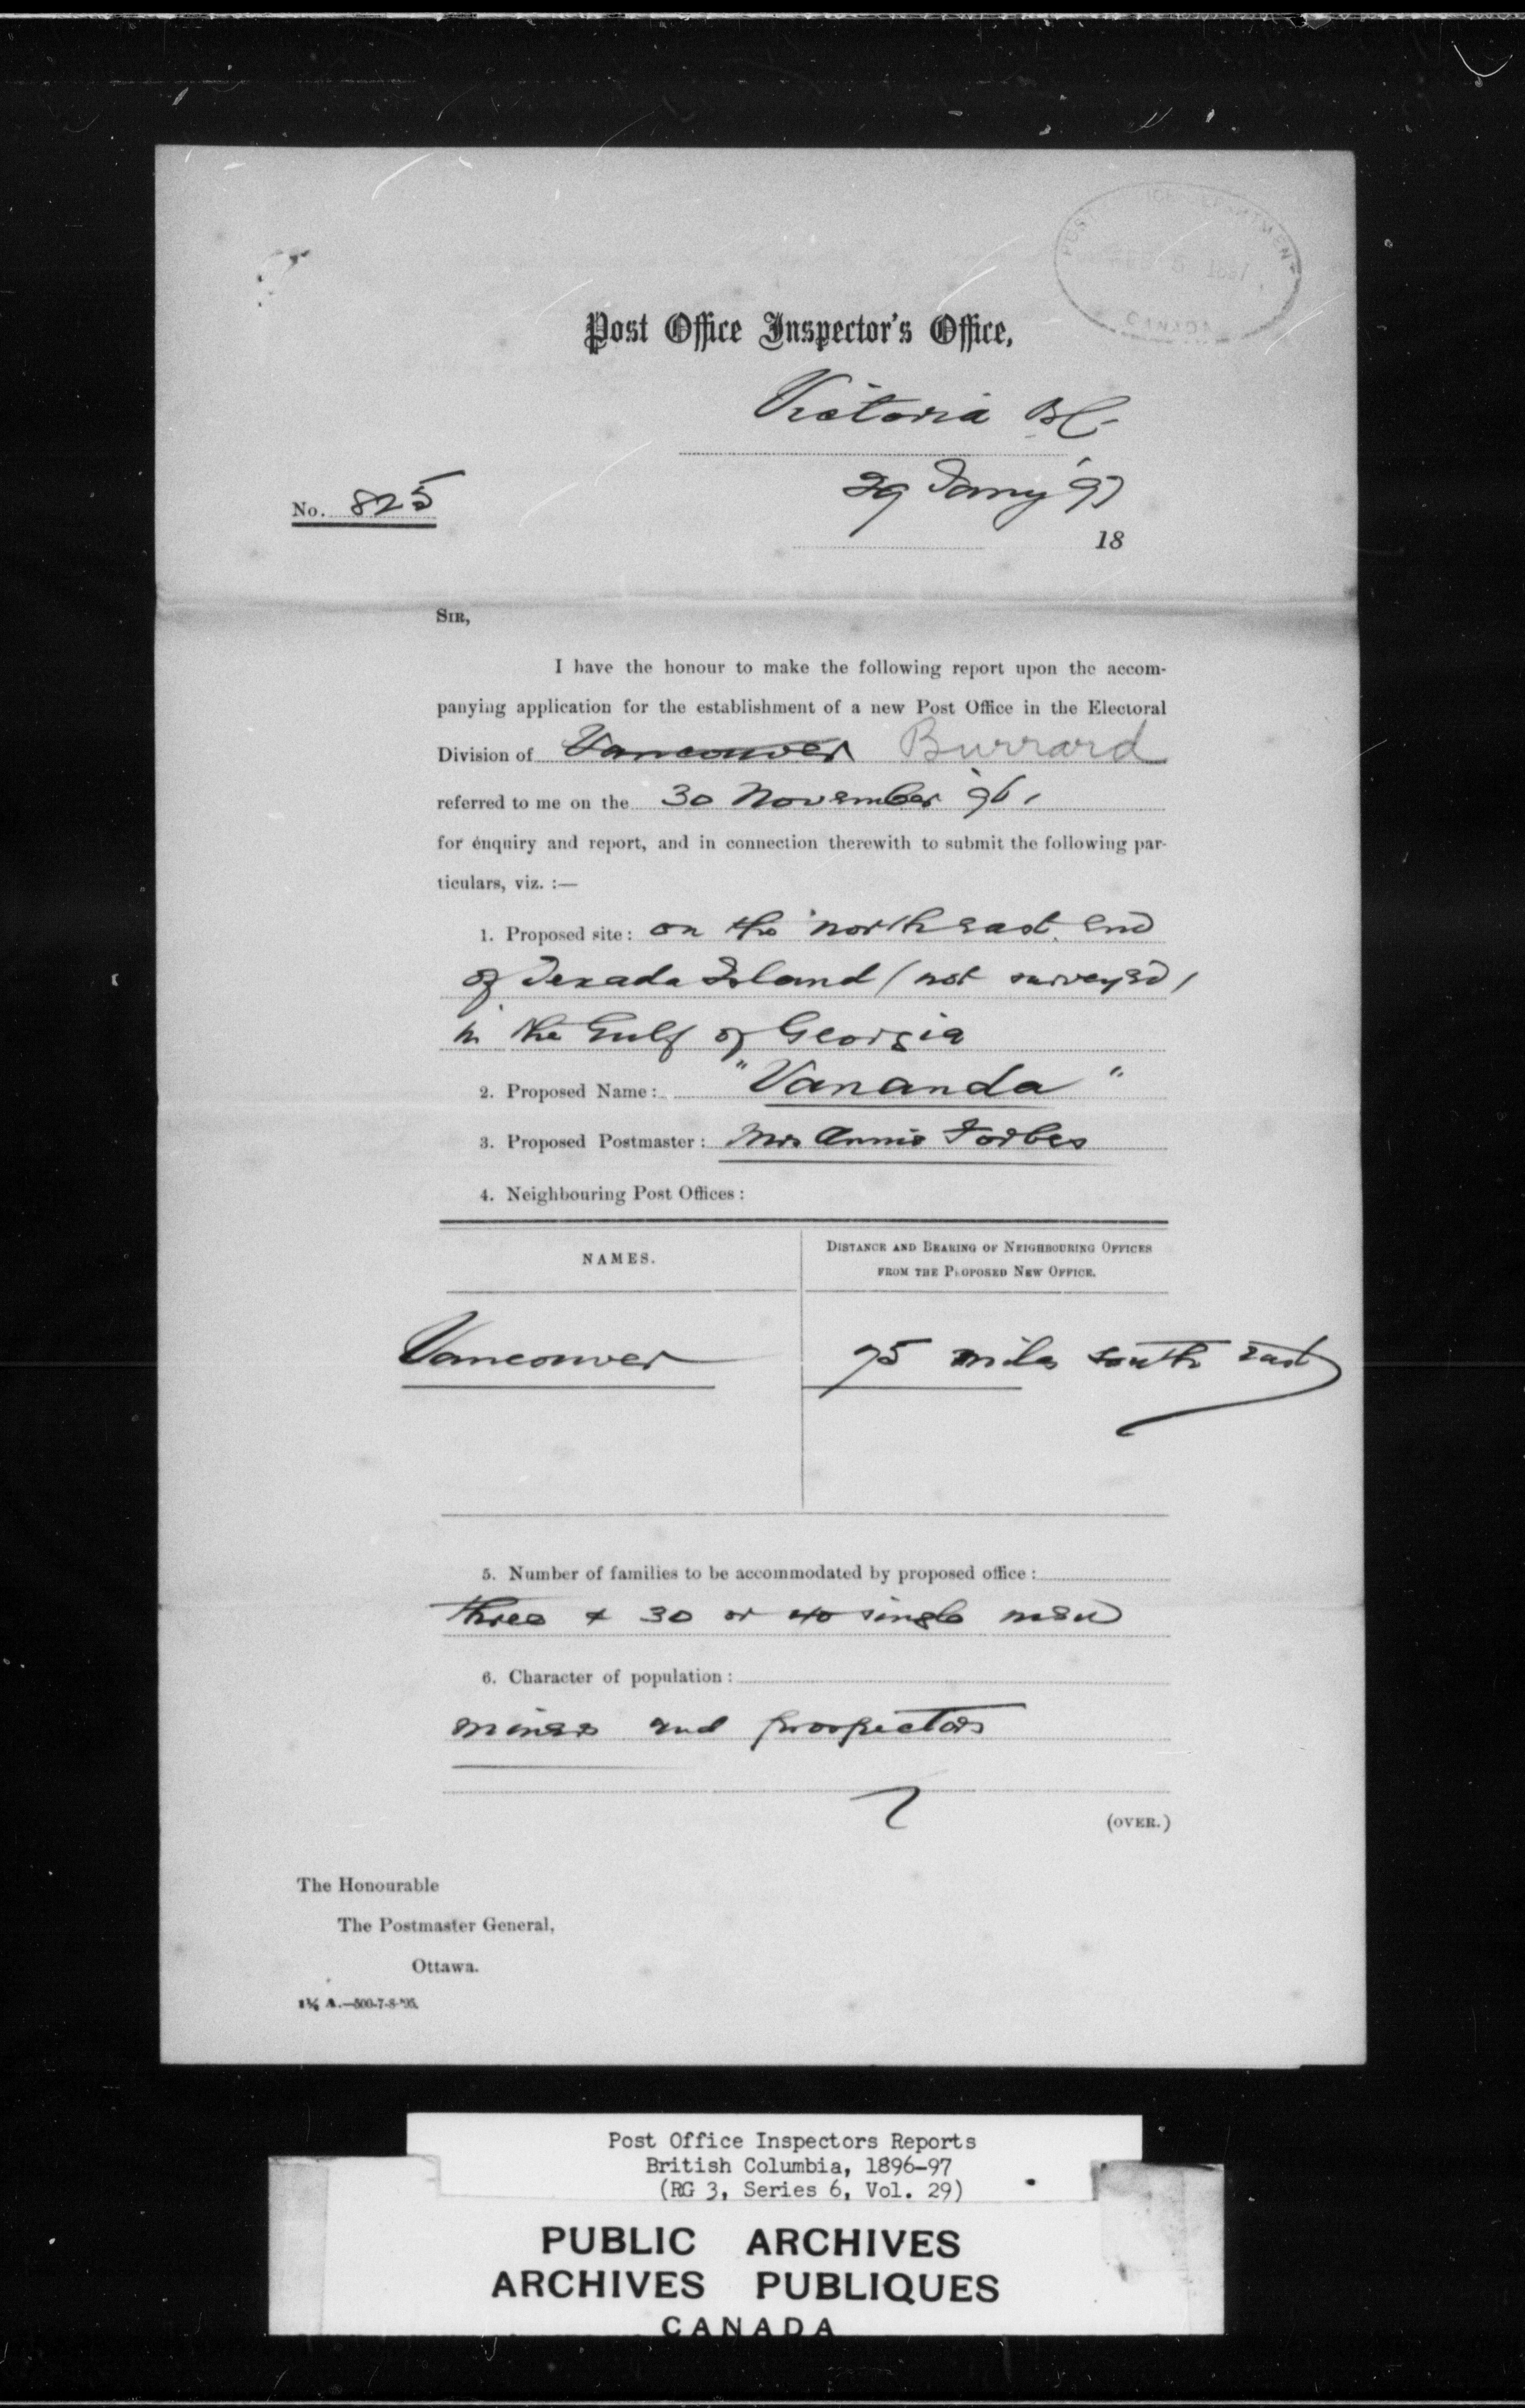 POST OFFICE DEPARTMENT
FEB 5 1897
CANADA
Post Office Inspector's Office,
Victoria BC.
29 Jany '97
No. 825
18
SIR,
I have the honour to make the following report upon the accom-
panying application for the establishment of a new Post Office in the Electoral
Division of Vancouver Burrard
referred to me on the 30 November '96.
for enquiry and report, and in connection therewith to submit the following par-
ticulars, viz. :—
1. Proposed site: on the north east end
of Texada Island (not surveyed)
in the Gulf of Georgia
2. Proposed Name: "Vananda"
3. Proposed Postmaster: Mrs Annie Forbes
4. Neighbouring Post Offices:
NAMES.
DISTANCE AND BEARING OF NEIGHBOURING OFFICES
FROM THE PROPOSED NEW OFFICE.
Vancouver
75 miles south east
5. Number of families to be accommodated by proposed office:
three & 30 or 40 single men
6. Character of population:
miners and prospectors
(OVER.)
The Honourable
The Postmaster General,
Ottawa.
A.—500-7-8-'95.
Post Office Inspectors Reports
British Columbia, 1896-97
(RG 3, Series 6, Vol. 29)
PUBLIC ARCHIVES
ARCHIVES PUBLIQUES
CANADA